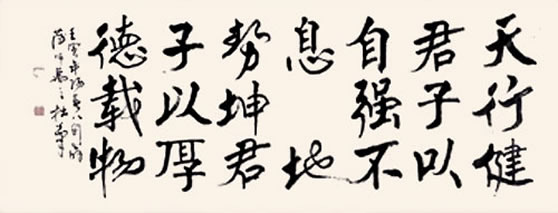 天行健
君子以
自强不
息地
势坤君
子以厚
德载物